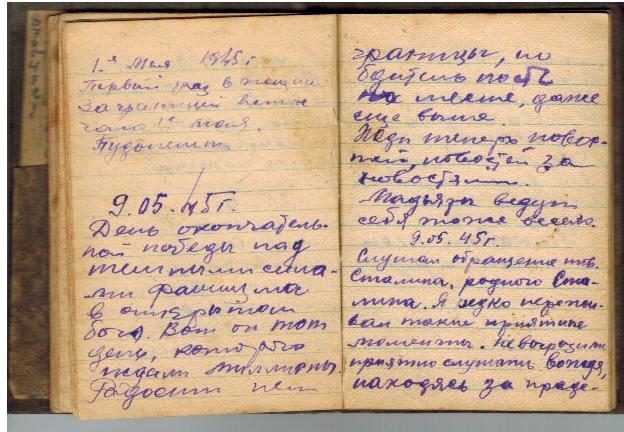 1.я Мая 1945 г.
Первый раз в жизни
за границей встре-
чаю 1е мая.
Будапешт
9.05.45г.
День окончатель-
ной победы над
темными сила-
ми фашизма
в открытом
бою. Вот он тот
день, которого
ждали миллионы.
Радости нет
границы, но
бдительность
на месте, даже
еще выше.
Жди теперь новос-
тей, новостей за
новостями.
Мадьяры ведут
себя тоже весело.
9.05.45г.
Слушал обращение тов.
Сталина, родного Ста-
лина. Я редко пережи-
вал такие приятные
моменты. Невыразимо
приятно слушать вождя,
находясь за преде-